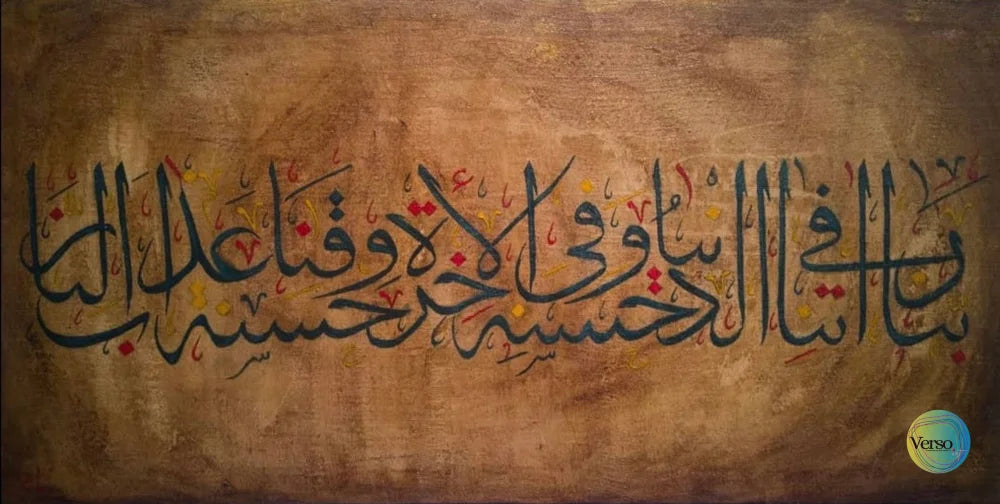 ربنا اتنا في الدنيا حسنة وفي الأخرة حسنة وقنا عذاب النار
Verso